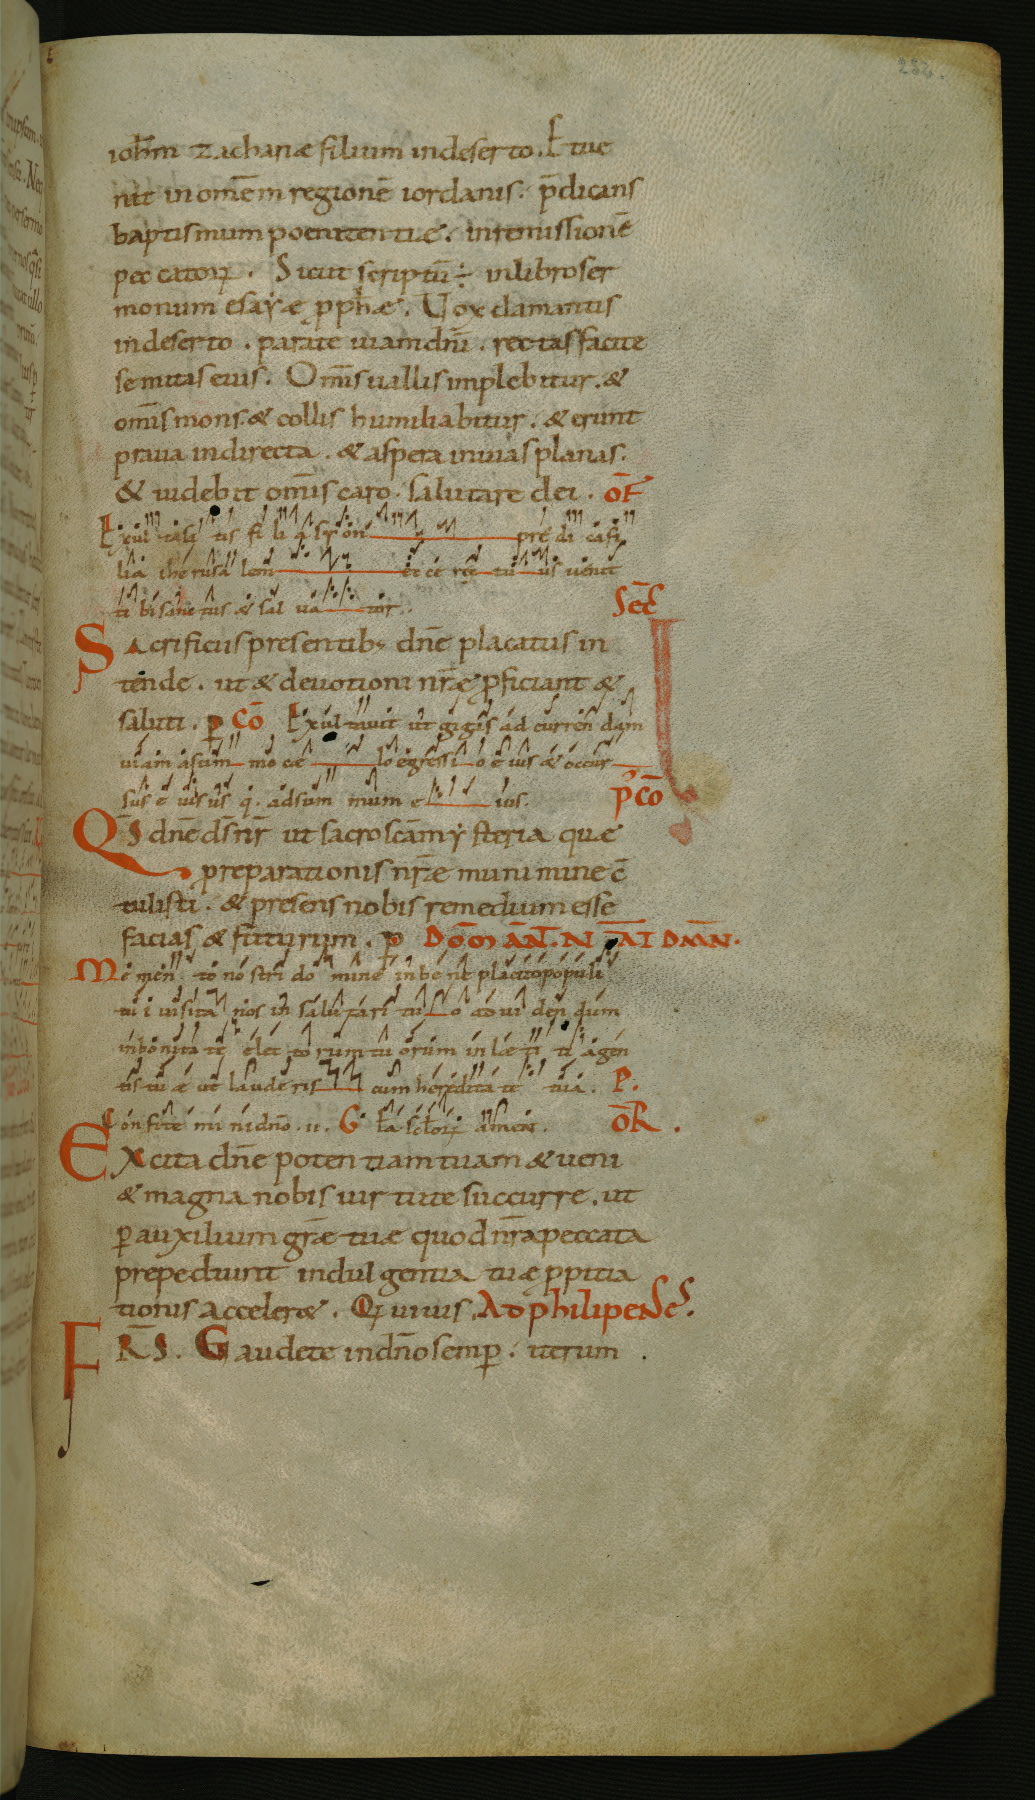 232.
ioh̄m zachariæ filium indeserto. Etue
nit inomēm regionē iordanis. p̄dicans
baptismum poenitentiæ. inremissionē
peccatorꝝ. Sicut scriptū ÷ inlibroser
monum esaẏæ ꝓph̄æ. Uox clamantis
indeserto. parate uiamdn̄i. rectasfacite
semitaseius. Om̄isuallisimplebitur. &
om̄ismons. & collis humiliabitur. & erunt
praua indirecta. & aspera inuiasplanas.
& uidebit om̄iscaro. salutare dei. OF̄
Exul tasa tis fi li a syon pre di casi
lia iheru sa lem ec ce rex tu us uenit
ti bi sanc tus & sal ua tor. Sec̄
Sacrificiis presentibꝰ dn̄e placatus in
tende. ut & deuotioni nr̄ę ꝓficiant &
saluti. p CŌ Exul tauit ut gigas ad curren dam
uiam asum mo cæ lo egressi o e ius & occur
sus e ius us q. adsum mum e ius. P̄CŌ
Q̄S dn̄e ds̄ nr̄ ut sacroscāmẏsteria quæ
preparationis nr̄æ munimine c̄
tulisti. & presens nobis remedium esse
facias & futurum. p DŌM ĀN̄T. N̄ĀT DM̄N.
Me men to no stri do mine inbe ne placitopopuli
tui i uisita nos in salu tari tu o ad ui den dum
inbonita te elec to rum tu orum in læ ti ti agen
tis tu æ ut laude ris cum heredita te tua. P.
Con fite mi nidn̄o. u. G ŌR.
Excita dn̄e potentiam tuam & ueni
& magna nobis uirtute succurre. ut
ꝑauxilium grāæ tuæ quodnr̄apeccata
prepediunt indulgentia tuæ ꝓpitia
tionis acceleræ. Q uiuis. AD philipenses.
FRS̄. Gaudete indn̄osemꝑ. iterum.